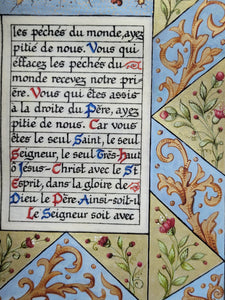 les péchés du monde, ayez
pitié de nous. Vous qui
effacez les péchés du
monde recevez notre pri-
ère. Vous qui êtes assis
à la droite du Père, ayez
pitié de nous. Car vous
êtes le seul Saint, le seul
Seigneur, le seul Très-Haut
ô Jésus-Christ avec le St
Esprit, dans la gloire de
Dieu le Père Ainsi-soit-il
Le Seigneur soit avec